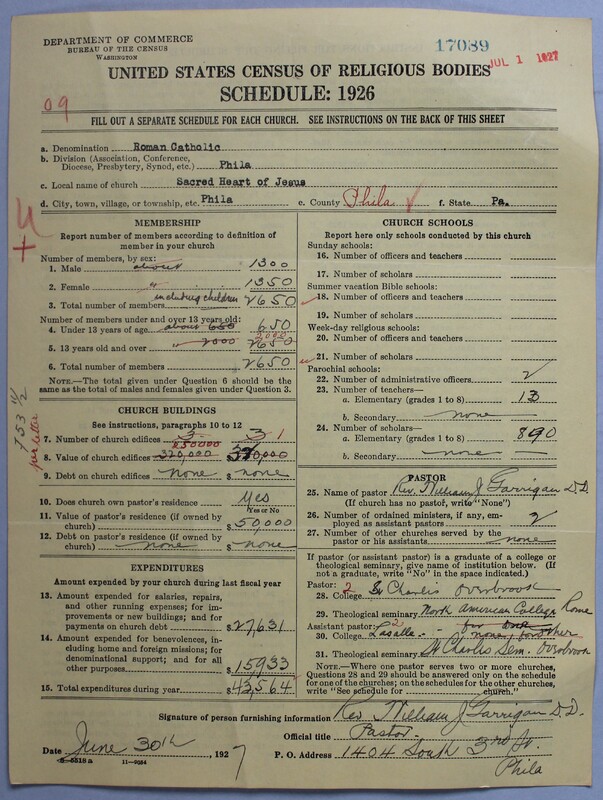 DEPARTMENT OF COMMERCE
BUREAU OF THE CENSUS
WASHINGTON
17089
JUL 1 1927
UNITED STATES CENSUS OF RELIGIOUS BODIES
SCHEDULE: 1926
09
FILL OUT A SEPARATE SCHEDULE FOR EACH CHURCH. SEE INSTRUCTIONS ON THE BACK OF THIS SHEET
a. Denomination Roman Catholic
b. Division (Association, Conference, Diocese, Presbytery, Synod, etc.) Phila
c. Local name of church Sacred Heart of Jesus
d. City, town, village, or township, etc. Phila e. County Phila f. State Pa.
MEMBERSHIP
Report number of members according to definition of
member in your church
Number of members, by sex:
1. Male about 1300
2. Female " 1350
3. Total number of members including children 2650
Number of members under and over 13 years old:
4. Under 13 years of age about 650 650
5. 13 years old and over " 2000 2650 2000
6. Total number of members 2650
NOTE.—The total given under Question 6 should be the
same as the total of males and females given under Question 3.
CHURCH BUILDINGS
See instructions, paragraphs 10 to 12
7. Number of church edifices 3 3 1
8. Value of church edifices 320,000 $
9. Debt on church edifices none $ none
10. Does church own pastor's residence Yes
Yes or No
11. Value of pastor's residence (if owned by
church) $ 50,000
12. Debt on pastor's residence (if owned by
church) none $ none
EXPENDITURES
Amount expended by your church during last fiscal year
13. Amount expended for salaries, repairs,
and other running expenses; for im-
provements or new buildings; and for
payments on church debt $ 27,631
14. Amount expended for benevolences,
including home and foreign missions; for
denominational support; and for all
other purposes $ 15933
15. Total expenditures during year $ 43,564
per letter
CHURCH SCHOOLS
Report here only schools conducted by this church
Sunday schools:
16. Number of officers and teachers
17. Number of scholars
Summer vacation Bible schools:
18. Number of officers and teachers
19. Number of scholars
Week-day religious schools:
20. Number of officers and teachers
21. Number of scholars
Parochial schools:
22. Number of administrative officers 2
23. Number of teachers—
a. Elementary (grades 1 to 8) 13
b. Secondary none
24. Number of scholars—
a. Elementary (grades 1 to 8) 890
b. Secondary none
PASTOR
25. Name of pastor Rev. William J Garrigan D.D.
(If church has no pastor, write "None")
26. Number of ordained ministers, if any, em-
ployed as assistant pastors 2
27. Number of other churches served by the
pastor or his assistants none
If pastor (or assistant pastor) is a graduate of a college or
theological seminary, give name of institution below. (If
not a graduate, write "No" in the space indicated.)
Pastor: 2
28. College St Charles Overbrook
29. Theological seminary North American College Rome
Assistant pastor: 2
30. College Lasalle - none, for other
31. Theological seminary St Charles Sem. Overbrook
NOTE.—Where one pastor serves two or more churches,
Questions 28 and 29 should be answered only on the schedule
for one of the churches; on the schedules for the other churches,
write "See schedule for church."
Signature of person furnishing information Rev. William J Garrigan D.D.
Official title Pastor
Date June 30th, 1927 P. O. Address 1404 South 3rd St.
Phila
8-5518a 11-9584